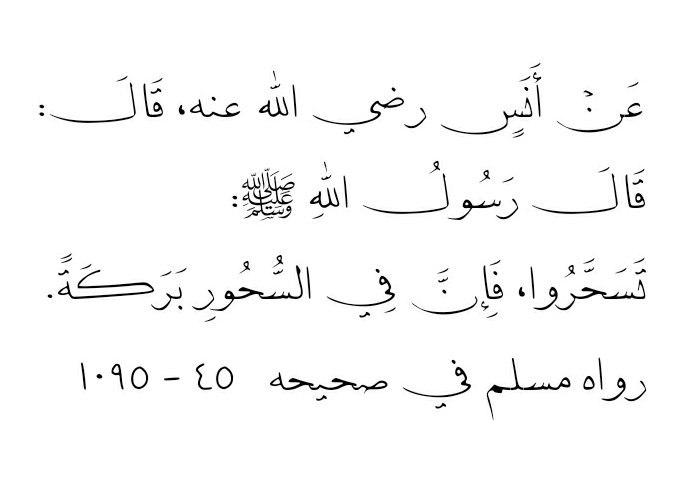 عَنْ أَنَسٍ رضي الله عنه، قَالَ:
قَالَ رَسُولُ اللهِ ﷺ:
تَسَحَّرُوا، فَإِنَّ فِي السُّحُورِ بَرَكَةً.
رواه مسلم في صحيحه ٤٥ - ١٠٩٥